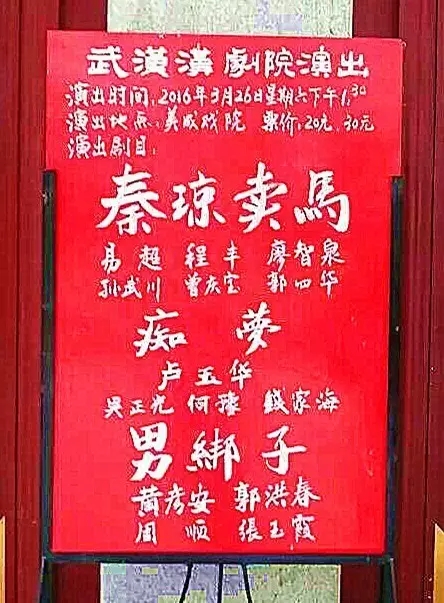 武漢漢劇院演出
演出时间：2016年3月26日星期六下午1:30
演出地点：美成戏院 票价：20元、30元
演出剧目：
秦琼卖馬
易超 程丰 廖智泉
孙武川 曾庆宝 郭四华
痴夢
卢玉华
吴正光 何臻 錢家海
男綁子
黄彦安 郭洪春
周顺 張玉霞